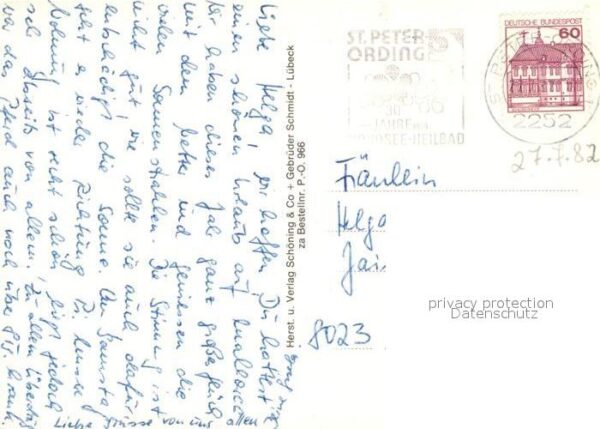 Liebe Helga, wir hoffen, Du hattest
einen schönen Urlaub auf
Wir haben dieses Jahr ganz großes Glück
mit dem Wetter und geniessen die
vielen Sonnenstrahlen. Die Stimmung ist
nicht gut, wie sollte sie auch
entschädigt die Sonne. Am Samstag
es wieder Richtung
Wohnung ist recht schön, liegt jedoch
sehr abseits von allem. Zu allem Überdruß
war das Pferd auch noch über krank.
Liebe Grüsse von uns allen
Herst. u. Verlag Schöning & Co + Gebrüder Schmidt - Lübeck
za Bestellnr. P.-O. 966
ST. PETER-
ORDING
30
JAHRE
NORDSEE-HEILBAD
DEUTSCHE BUNDESPOST
60
ST. PETER-ORDING 1
2252
27.7.82
Fräulein
Helga
Jai
8023
privacy protection
Datenschutz